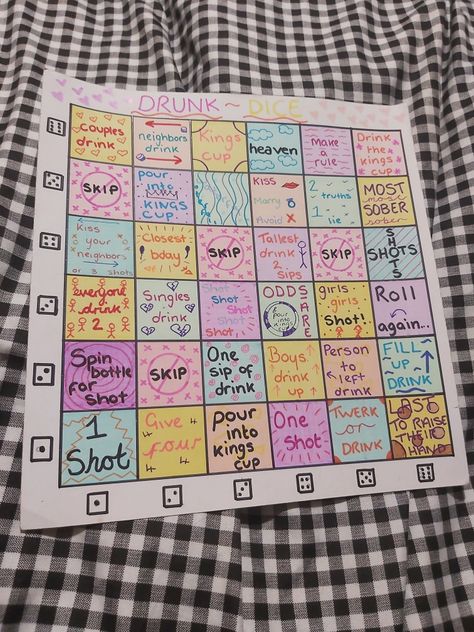 DRUNK ~ DICE
Couples
drink
neighbors
drink
Kings
cup
heaven
Make
a
rule
Drink
the
kings
cup
SKIP
pour
into
KINGS
CUP.
Kiss
Marry
Avoid X
2
truths
1 lie
MOST
most
SOBER
sober
Kiss
your
neighbors
or 3 shots
Closest
bday
SKIP
Tallest
drink
2
sips
SKIP
SHOTS
SHOTS
everyone
drink
2
Singles
drink
Shot
Shot
Shot
Shot
Shot..
ODDS
ARE
pour into kings
girls
girls
Shot!
Roll
again...
Spin
bottle
for
shot
SKIP
One
sip of
drink
Boys
drink
up
Person
to
left
drink
FILL
UP
DRINK
1
Shot
Give
four
pour
into
kings
cup
One
Shot
TWERK
OR
DRINK
LAST
TO RAISE
THEIR
HAND